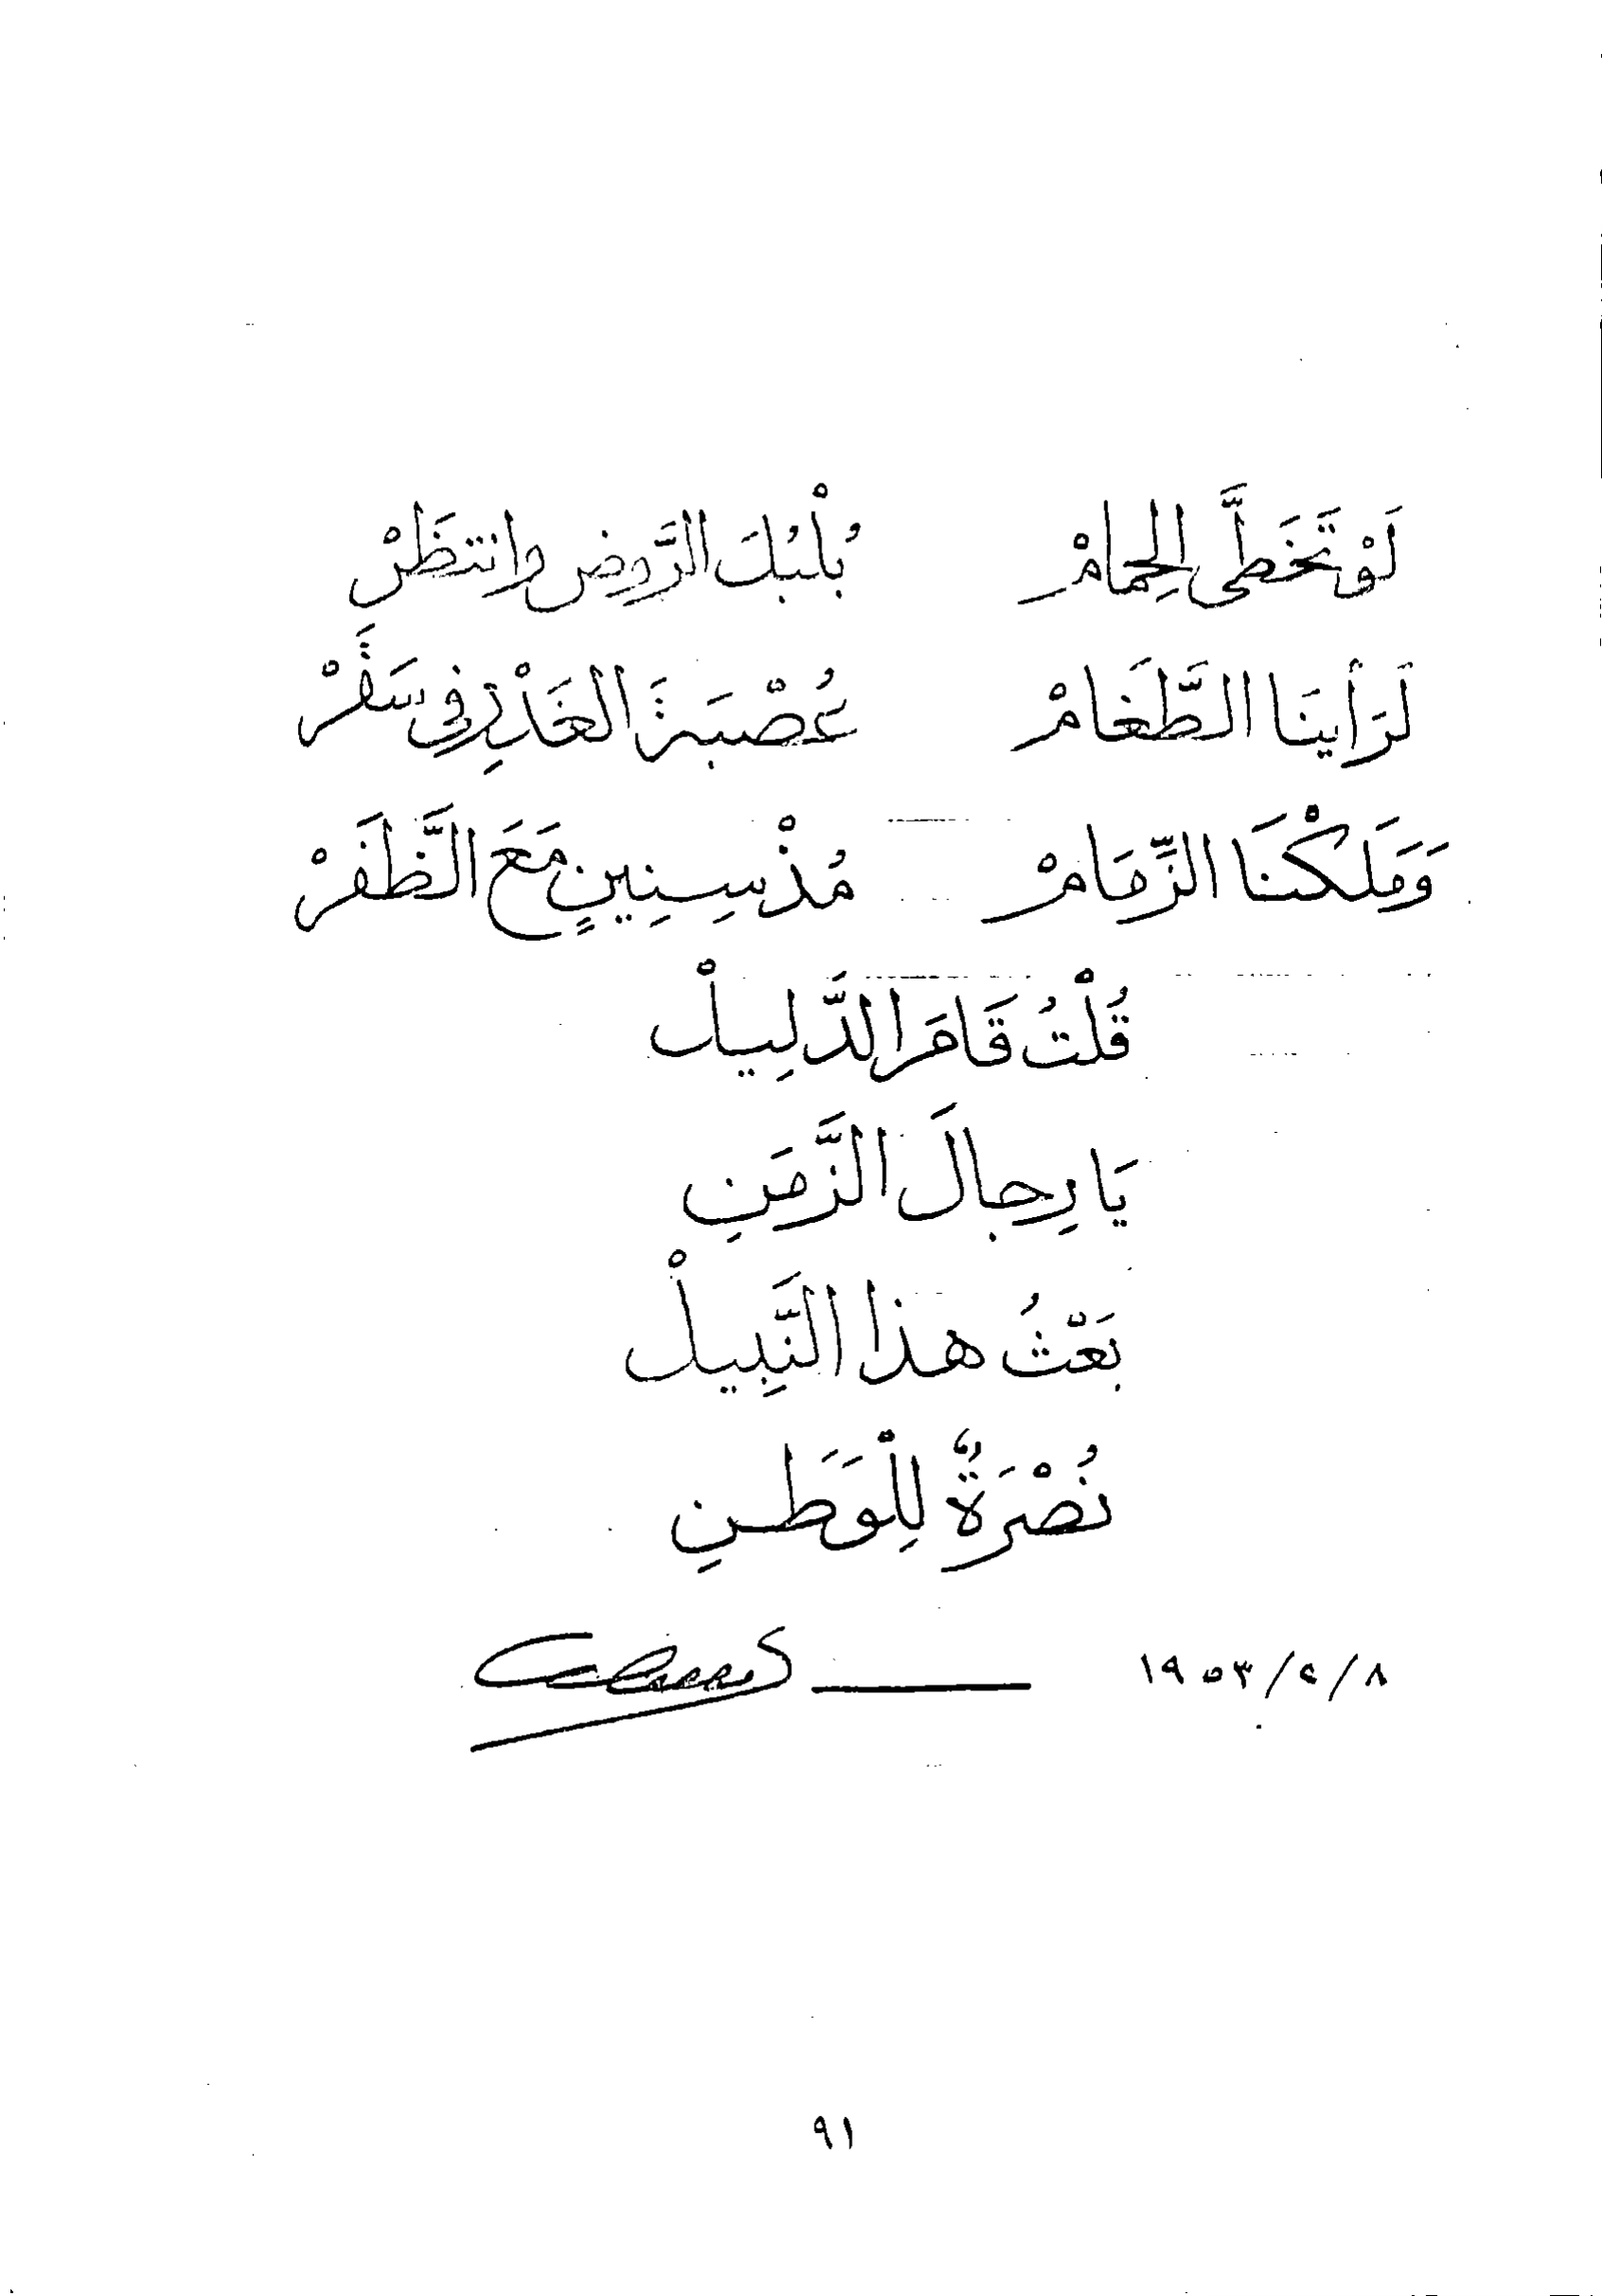 لَوْ تَخَطَّى الحِمامْ بُلْبُلَ الرَّوضِ وانتظَرْ
لَرَأينَا الطَّغَامْ عُصْبَةَ الغَدْرِ في سَقَرْ
وَمَلَكْنَا الزِّمَامْ مُذْ سِنِينٍ مَعَ الظَّفَرْ
قُلْتُ قَامَ الدَّلِيلْ
يَا رِجالَ الزَّمَنِ
بَعْثُ هذا النَّبِيلْ
نُصْرَةٌ لِلْوَطَنِ
٨/٤/١٩٥٣
٩١